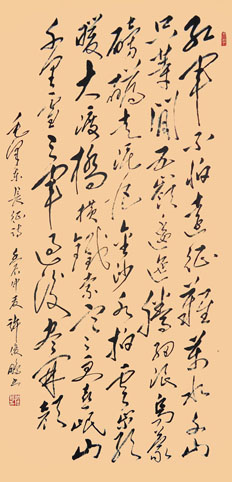 紅軍不怕遠征難萬水千山
只等閒五嶺逶迤騰細浪烏蒙
磅礴走泥丸金沙水拍雲崖
暖大渡橋橫鐵索寒更喜岷山
千里雪三軍過後盡開顏
毛澤東長征詩 仲夏 許俊 書